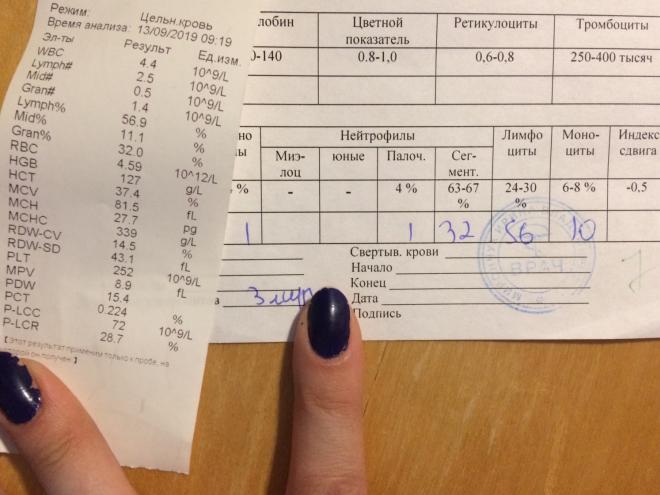 Режим: Цельн.кровь
Время анализа: 13/09/2019 09:19
Эл-ты Результ Ед.изм.
WBC 4.4 10^9/L
Lymph# 2.5 10^9/L
Mid# 0.5 10^9/L
Gran# 1.4 10^9/L
Lymph% 56.9 %
Mid% 11.1 %
Gran% 32.0 %
RBC 4.59 10^12/L
HGB 127 g/L
HCT 37.4 %
MCV 81.5 fL
MCH 27.7 pg
MCHC 339 g/L
RDW-CV 14.5 %
RDW-SD 43.1 fL
PLT 252 10^9/L
MPV 8.9 fL
PDW 15.4
PCT 0.224 %
P-LCC 72 10^9/L
P-LCR 28.7 %
[ Этот результат применим только к пробе, на
которой он получен. ]
лобин Цветной Ретикулоциты Тромбоциты
показатель
0-140 0.8-1,0 0,6-0,8 250-400 тысяч
но Нейтрофилы Лимфо Моно- Индекс
лы Миэ- юные Палоч. Сег- циты циты сдвига
лоц мент.
% - - 4 % 63-67 24-30 6-8 % -0,5
% %
1 1 32 56 10
Свертыв. крови
Начало
Конец
ВРАЧ
Дата
Подпись